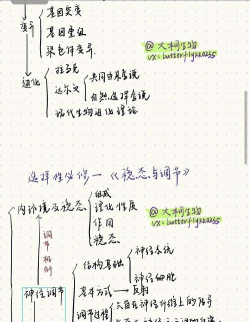 基因突变
变异
基因重组
染色体变异
@大柯生物
vx: butterflykk0235
拉马克
进化
达尔文
共同由来学说
自然选择学说
现代生物进化理论
选择性必修一《稳态与调节》
组成
内环境及稳态
理化性质
@大柯生物
vx: butterflykk0235
作用
稳态
调节机制
神经系统
结构基础
神经细胞
神经调节
基本方式—反射
调节过程